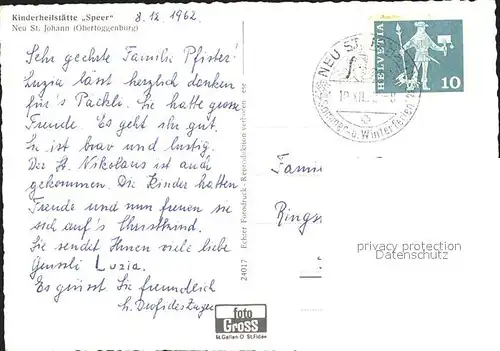 Kinderheilstätte „Speer" 8.12.1962.
Neu St. Johann (Obertoggenburg)
Sehr geehrte Familie Pfister!
Luzia lässt herzlich danken
für's Päckli. Sie hatte grosse
Freude. Es geht ihr gut.
Sie ist brav und lustig.
Der St. Nikolaus ist auch
gekommen. Die Kinder hatten
Freude und nun freuen sie
sich auf's Christkind.
Sie sendet Ihnen viele liebe
Grüssli Luzia.
Es grüsst Sie freundlich
24017 Echter Fotodruck - Reproduktion verboten
foto
Gross
St.Gallen O St.Fiden
NEU ST.
10.XII.
Sommer- u. Winterferien
HELVETIA
10
Famili
Rings
privacy protection
Datenschutz